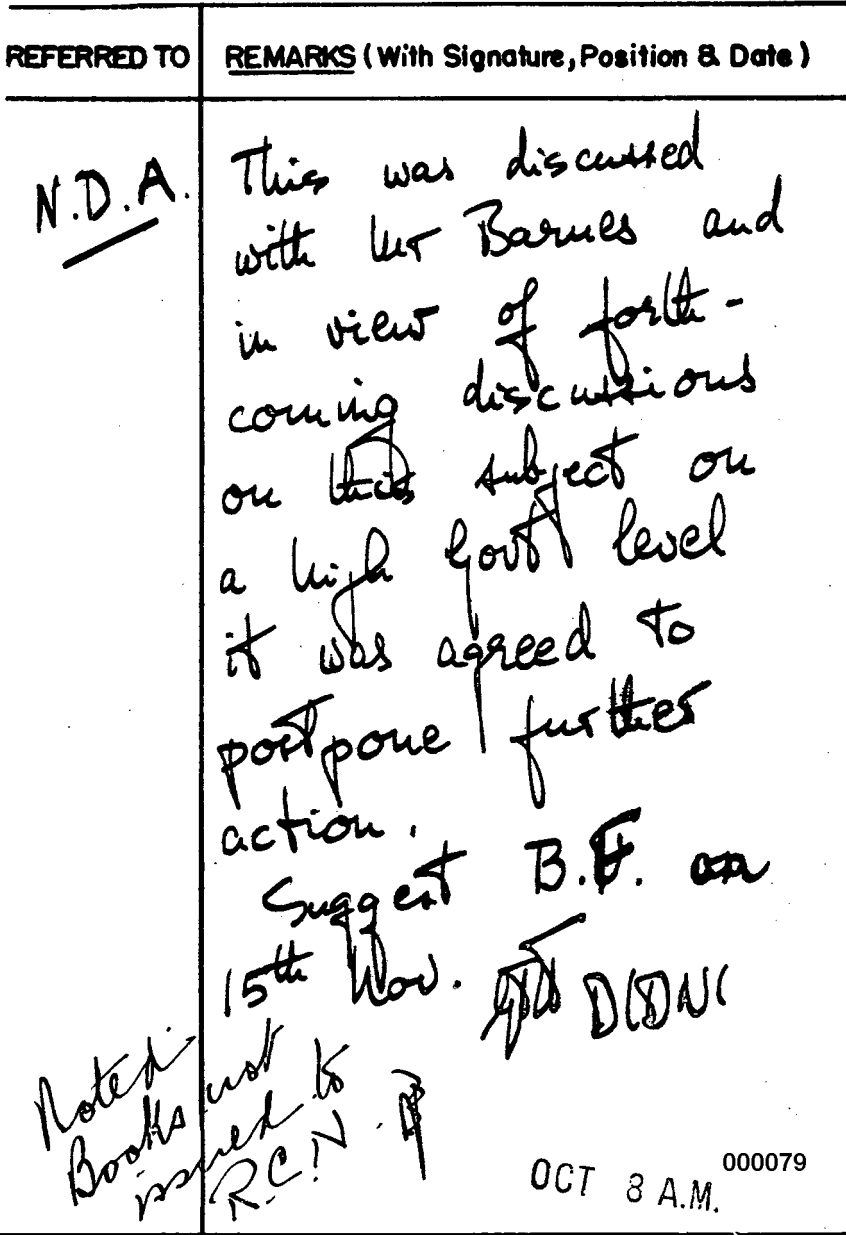 REFERRED TO
REMARKS (With Signature, Position & Date)
N.D.A.
This was discussed
with Mr Barnes and
in view of forth-
coming discussions
on this subject on
a high Govt level
it was agreed to
postpone further
action.
Suggest B.F. on
15th Nov.
Noted.
Books not
issued to
R.C.N.
OCT 8 A.M.
000079